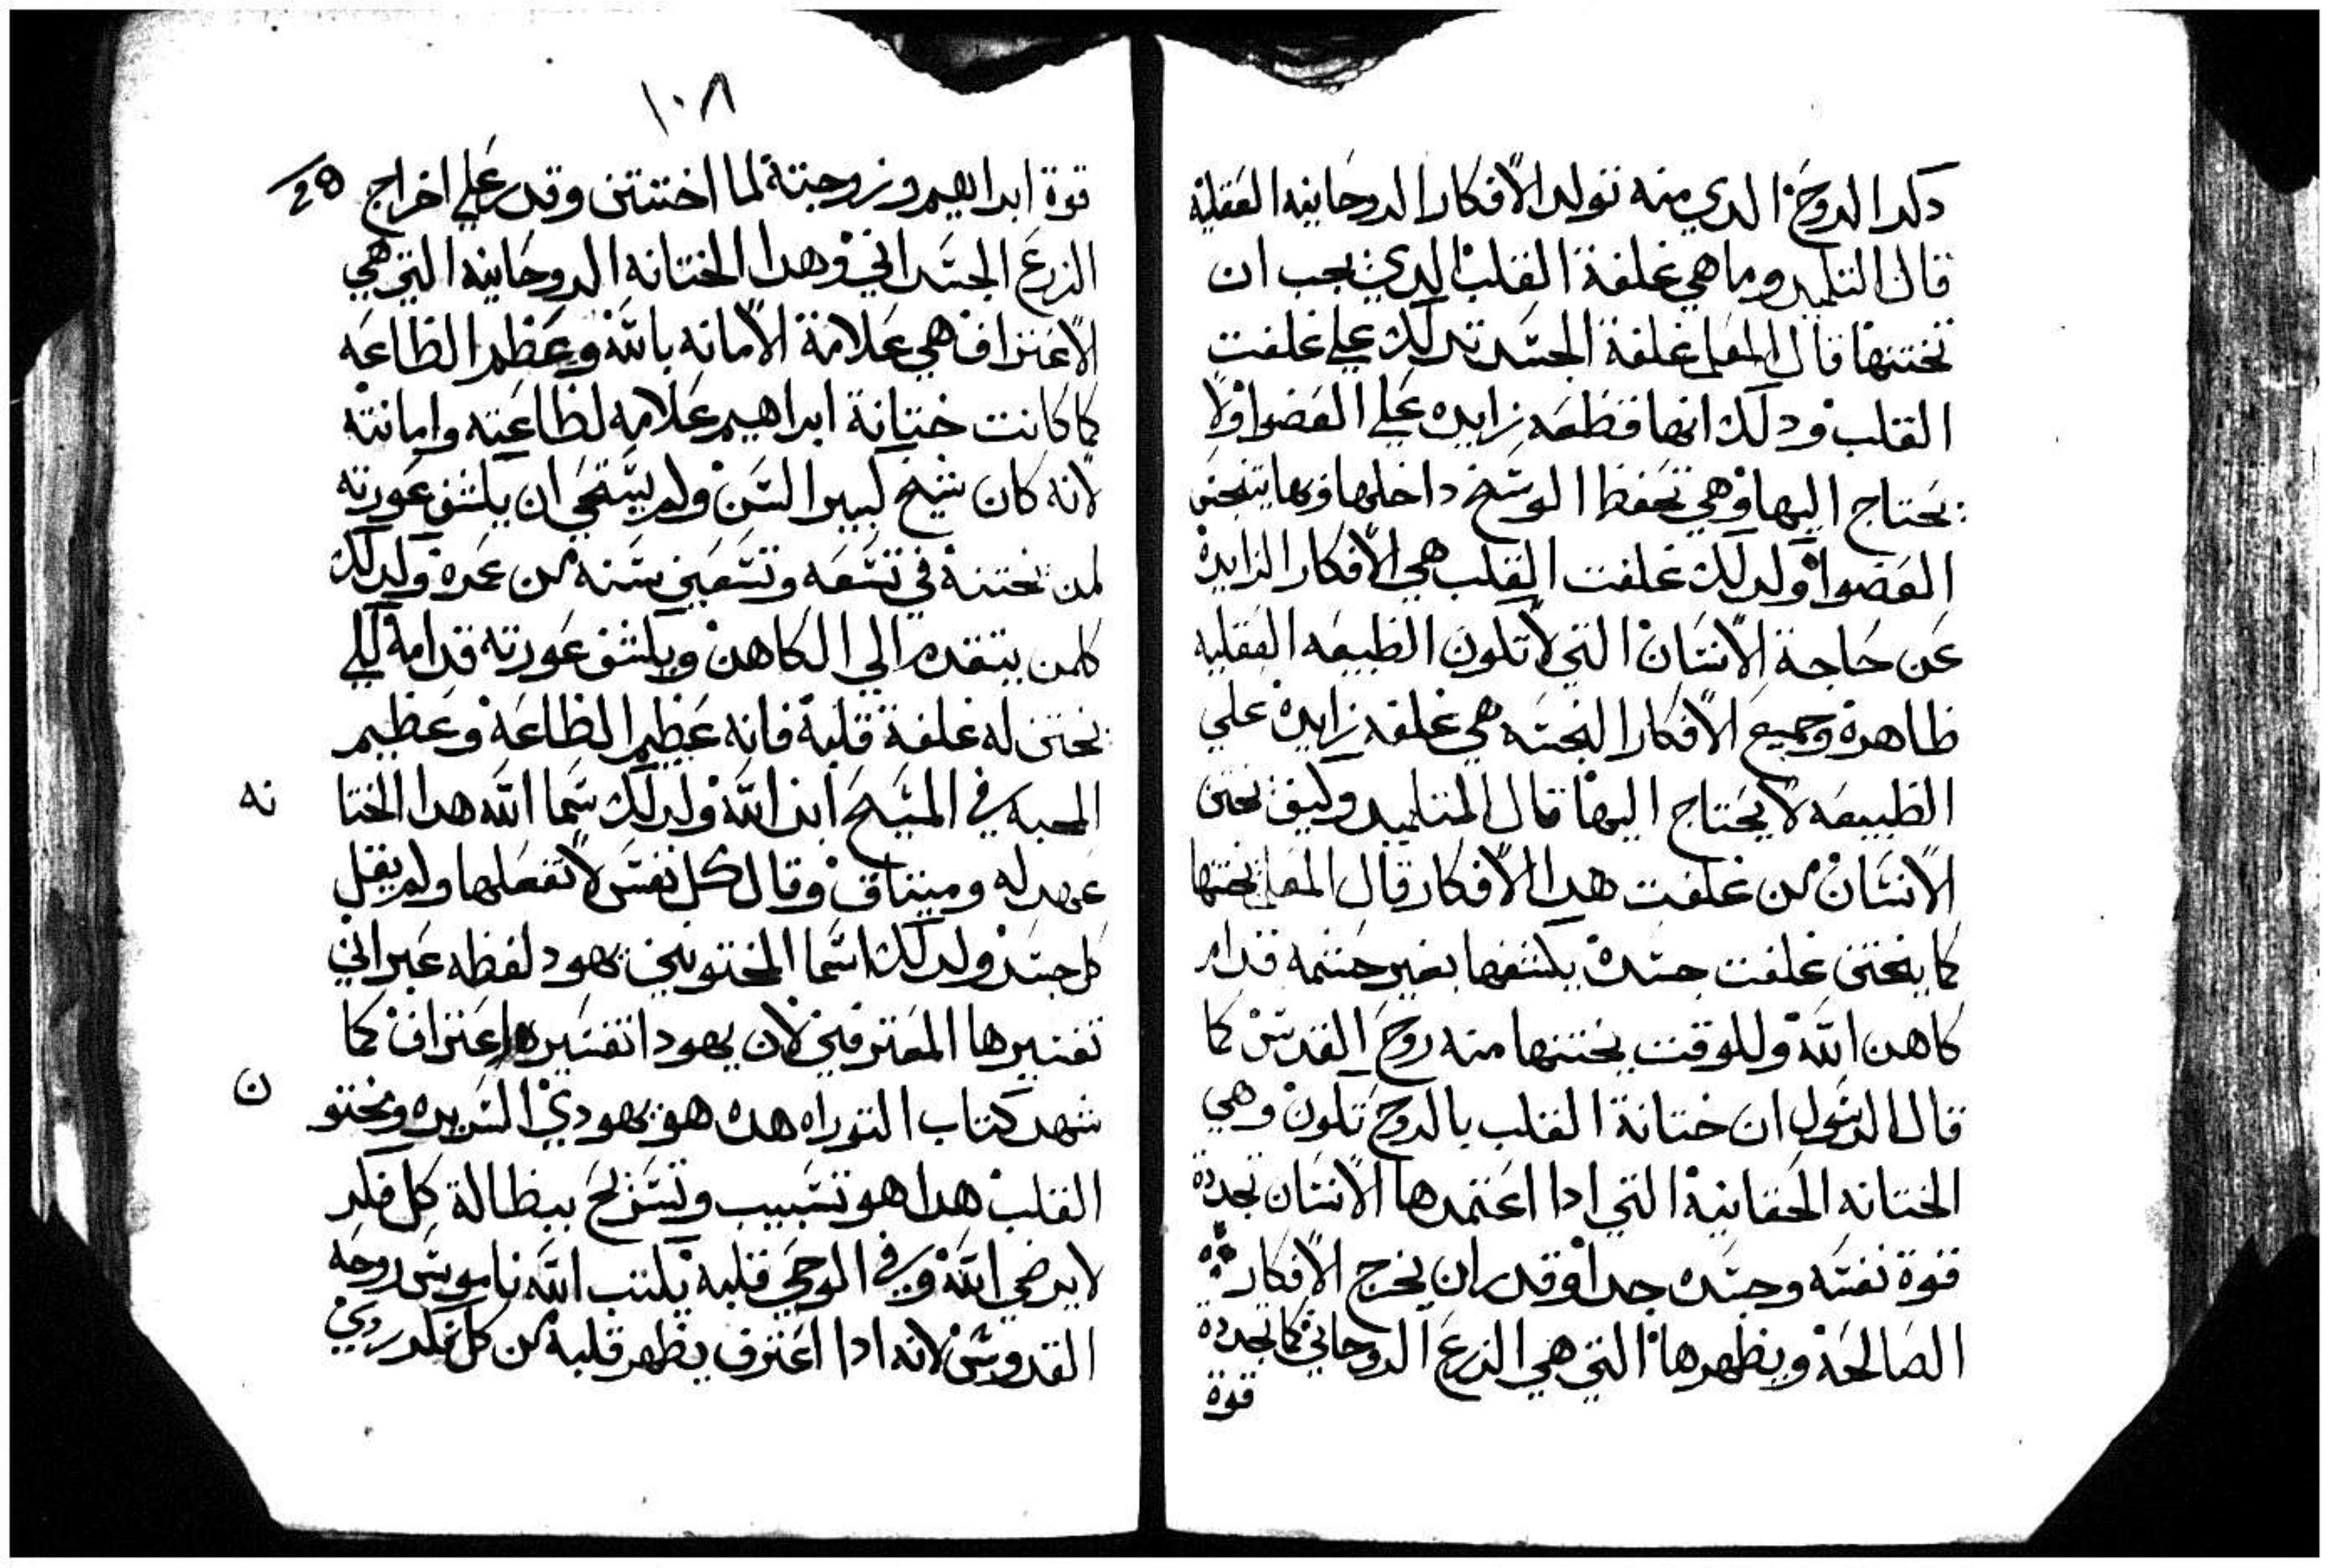 دكر الروح الدي منه تولد الافكار الروحانيه العقليه
قال التلميد وما هي غلفة القلب الدي يجب ان
نختنها قال المعلم غلفة الجسد تدلك علي غلفت
القلب ودلك انها قطعه زايده علي العضوا ولا
يحتاج اليها وهي تحفظ الوسخ داخلها وبها يتنجس
العضوا ولدلك غلفت القلب هي الافكار الزايدة
عن حاجة الانسان التي لا تكون الطبيعه العقليه
طاهرة وجميع الافكار النجسه هي غلفه زايدة علي
الطبيعه لا يحتاج اليها قال المتلميد وكيف نختن
الانسان من غلفت هدا الافكار قال المعلم يختنها
كما يختن غلفت جسدة يكشفها بغير حشمه قدام
كاهن الله وللوقت يختنها منه روح القدس كما
قال الرسول ان ختانة القلب بالروح تكون وهي
الختانه الحقانية التي ادا اعتمدها الانسان تجددة
قوة نفسه وجسده جدا وقدر ان يخرج الافكار
الصالحة ويطهرها التي هي الزرع الروحاني كما تجدده
قوة
١٠٨
قوة ابراهيم وزوجته لما اختتن وقدر علي اخراج
28
الزرع الجسداني وهدا الختانه الروحانيه التي هي
الاعتراف هي علامة الامانه بالله وعظم الطاعه
كما كانت ختانة ابراهيم علامه لطاعته وامانته
لانه كان شيخ كبير السن ولم يستحي ان يكشف عورته
لمن يختنه في تسعه وتسعين سنه من عمرة ولدلك
كلمن يتقدم الي الكاهن ويكشف عورته قدامه لكي
يختن له غلفة قلبه فانه عظيم الطاعة وعظيم
المحبه في المسيح ابن الله ولدلك سما الله هدا الختا
نه
عهد له وميتاق وقال كل نفس لا تفعلها ولم يقل
كل جسد ولدلك اسما المختونين يهود لفظه عبراني
تفسيرها المعترفين لان يهودا تفسيره اعتراف كما
شهد كتاب التوراه هده هو يهودي السريره ومختو
ن
القلب هدا هو تسبيب وتسريح ببطالة كل فكر
لا يرضي الله وفي الوحي قلبه يكتب الله ناموس روحه
القدوس لانه ادا اعترف يطهر قلبه من كل فكر ردي